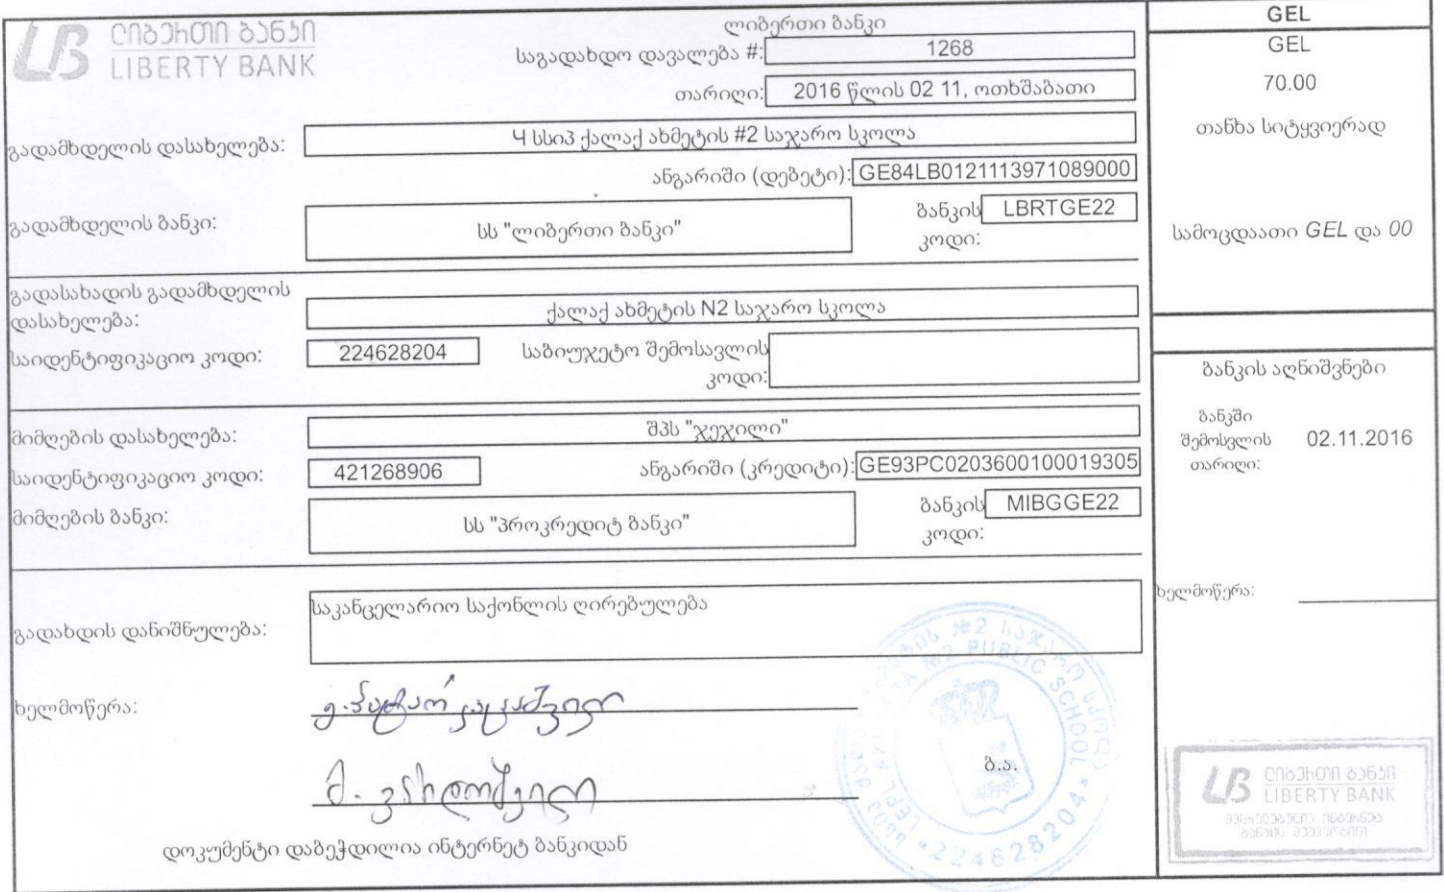 ლიბერთი ბანკი
LIBERTY BANK
ლიბერთი ბანკი
საგადახდო დავალება #: 1268
თარიღი: 2016 წლის 02 11, ოთხშაბათი
გადამხდელის დასახელება: Ч სსიპ ქალაქ ახმეტის #2 საჯარო სკოლა
ანგარიში (დებეტი): GE84LB0121113971089000
გადამხდელის ბანკი: სს "ლიბერთი ბანკი"
ბანკის კოდი: LBRTGE22
გადასახადის გადამხდელის
დასახელება: ქალაქ ახმეტის N2 საჯარო სკოლა
საიდენტიფიკაციო კოდი: 224628204
საბიუჯეტო შემოსავლის
კოდი:
მიმღების დასახელება: შპს "ჯეჯილი"
საიდენტიფიკაციო კოდი: 421268906
ანგარიში (კრედიტი): GE93PC0203600100019305
მიმღების ბანკი: სს "პროკრედიტ ბანკი"
ბანკის კოდი: MIBGGE22
გადახდის დანიშნულება: საკანცელარიო საქონლის ღირებულება
ხელმოწერა:
ბ.ა.
დოკუმენტი დაბეჭდილია ინტერნეტ ბანკიდან
GEL
GEL
70.00
თანხა სიტყვიერად
სამოცდაათი GEL და 00
ბანკის აღნიშვნები
ბანკში
შემოსვლის 02.11.2016
თარიღი:
ხელმოწერა:
№2 PUBLIC SCHOOL
224628204
ლიბერთი ბანკი
LIBERTY BANK